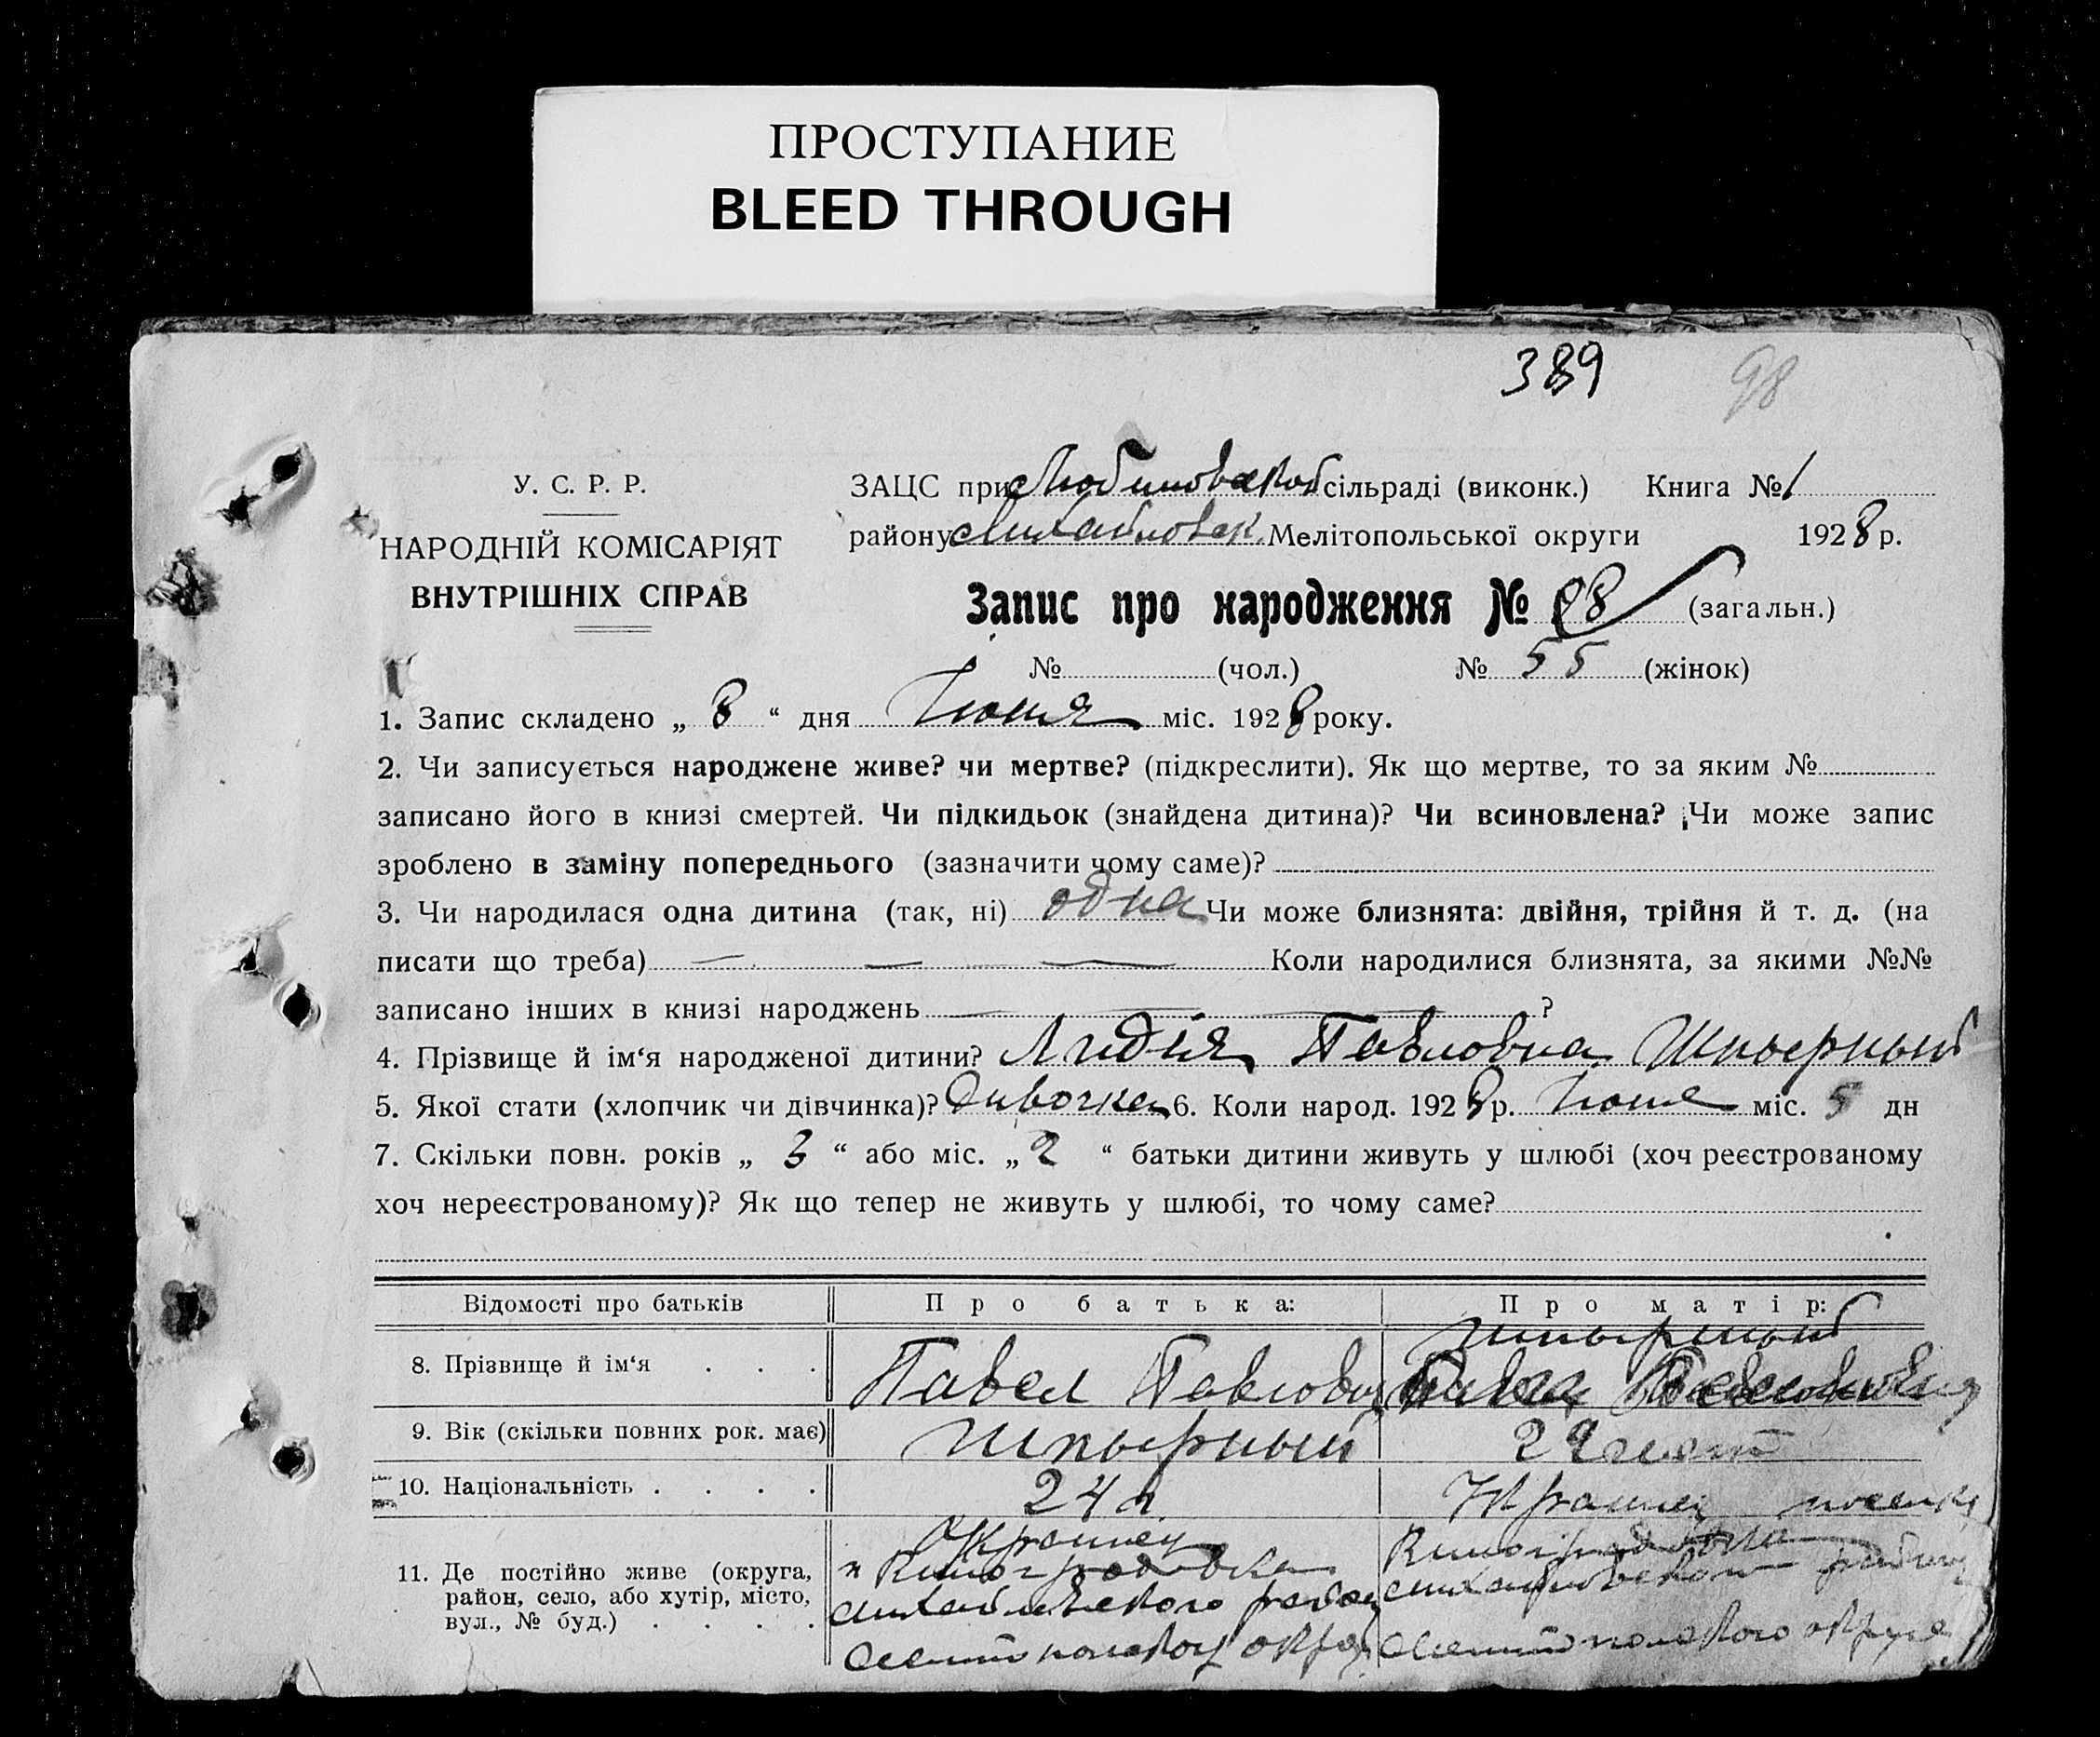 ПРОСТУПАНИЕ
BLEED THROUGH
389 98
У. С. Р. Р.
НАРОДНІЙ КОМІСАРІЯТ
ВНУТРІШНІХ СПРАВ
ЗАЦС при сільраді (виконк.) Книга № 1
району Михайловск. Мелітопольської округи 1928 р.
Запис про народження № 98 (загальн.)
№ (чол.) № 55 (жінок)
1. Запис складено „ 8 “ дня Июня міс. 1928 року.
2. Чи записується народжене живе? чи мертве? (підкреслити). Як що мертве, то за яким №
записано його в книзі смертей. Чи підкидьок (знайдена дитина)? Чи всиновлена? Чи може запис
зроблено в заміну попереднього (зазначити чому саме)?
3. Чи народилася одна дитина (так, ні) одна Чи може близнята: двійня, трійня й т. д. (на
писати що треба) — — — Коли народилися близнята, за якими №№
записано інших в книзі народжень ?
4. Прізвище й ім‘я народженої дитини? Лидія Павловна Шпырный
5. Якої стати (хлопчик чи дівчинка)? Дивочка 6. Коли народ. 1928 р. Июня міс. 5 дн
7. Скільки повн. років „ 3 “ або міс. „ 2 “ батьки дитини живуть у шлюбі (хоч реєстрованому
хоч нереєстрованому)? Як що тепер не живуть у шлюбі, то чому саме?
Відомості про батьків Про батька: Про матір:
Шпырный
8. Прізвище й ім‘я . . . Павел Павлович
9. Вік (скільки повних рок. має) Шпырный
10. Національність . . . . 24 л.
Украинец
11. Де постійно живе (округа,
район, село, або хутір, місто,
вул., № буд.) . . . .
п Виноградовка Виноградовка
Михайловского района Михайловского района
Мелитопольского округа